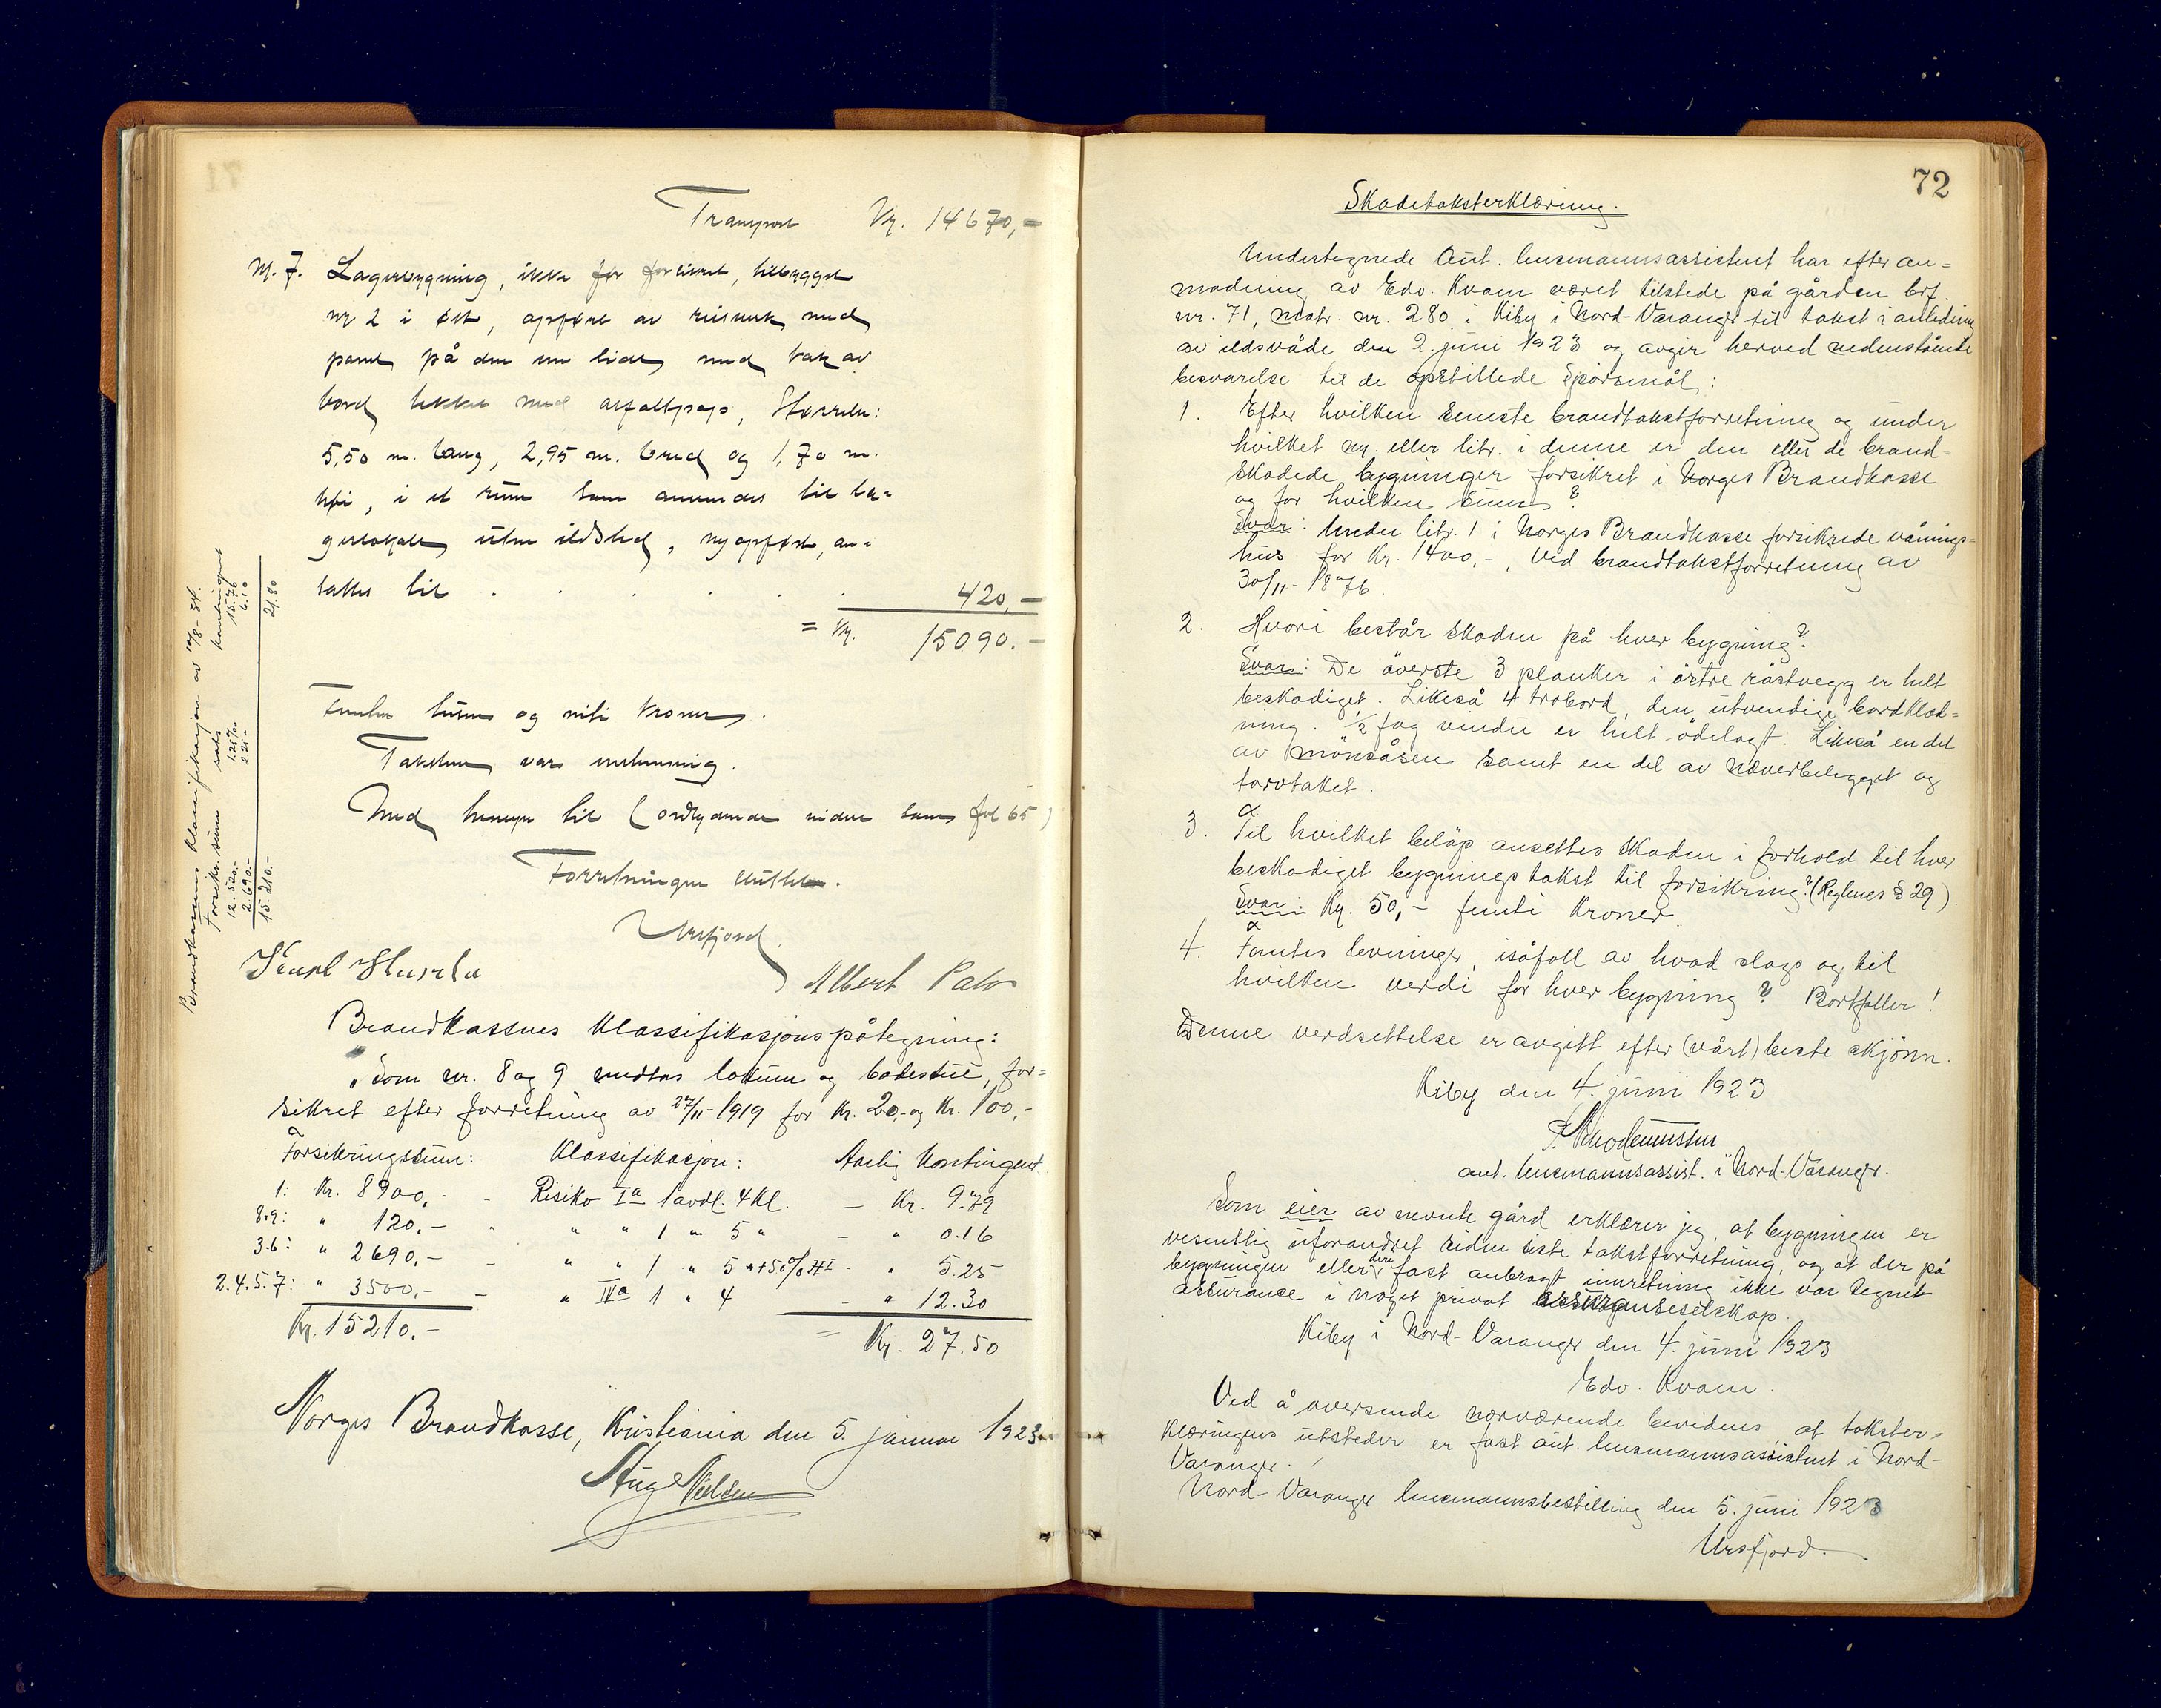 Transport Kr. 14670,-
Nr. 7. Lagerbygning, ikke før forsikret, tilbygget
nr 2 i øst, opført av reisverk med
panel på den ene side, med tak av
bord tekket med asfaltpapp, Størrelse:
5,50 m. lang, 2,95 m. bred og 1,70 m.
høi, i et rum som anvendes til la-
gerlokale, uten ildsted, nyopført, an-
sattes til . . . . . 420,-
= Kr. 15090.-
Femten tusen og nitti kroner.
Taksten var enstemmig.
Med hensyn til (ordlydende videre som fol 65)
Forretningen sluttet.
Ursfjord.
Albert Palo
Brandkassens klassifikasjon av 10/8-34.
Forsikr. sum sats kontingent
12.520.- 1.25 ‰ 15.76
2.690.- 2.25 - 6.10
15.210.- 21.80
Brandkassens klassifikasjonspåtegning:
"Som nr. 8 og 9 medtas lokum og badestue, for-
sikret efter forretning av 27/11-1919 for Kr. 20,- og Kr. 100,-
Forsikringssum: Klassifikasjon: Aarlig Kontingent.
1: Kr. 8900,- - Risiko Ia 1 avdl. 4 Kl. - Kr. 9.79
8.9: " 120.- - " " 1 " 5 " - " 0.16
3.6: " 2690,- - " " 1 " 5 " +50% HI - " 5.25
2.4.5.7: " 3500,- - " IVa 1 " 4 - " 12.30
Kr. 15210.- = Kr. 27.50
Norges Brandkasse, Kristiania den 5. januar 1923
Aug Nielsen
72
Skadetaksterklæring.
Undertegnede Aut. lensmannsassistent har efter an-
modning av Edv. Kvam været tilstede på gården brf.
nr. 71, matr. nr. 280 i Kiby i Nord-Varanger til takst i anledning
av ildsvåde den 2. juni 1923 og avgir herved nedenstående
besvarelse til de opstillede spörsmål:
1. Efter hvilken seneste brandtakstforretning og under
hvilket nr. eller litr. i denne er den eller de brand-
skadede bygninger forsikret i Norges Brandkasse
og for hvilken sum?
Svar: Under litr. 1 i Norges Brandkasse forsikrede vånings-
hus for Kr. 1400,-, ved brandtakstforretning av
30/11-1876.
2. Hvori består skaden på hver bygning?
Svar: De överste 3 planker i östre röstvegg er helt
beskadiget. Likeså 4 trobord, den utvendige bordklæd-
ning. 1/2 fag vindu er helt ödelagt. Likeså en del
av mönsåsen samt en del av næverbelegget og
torvtaket.
3. Til hvilket belöp ansettes skaden i forhold til hver
beskadiget bygnings takst til forsikring? (Reglenes § 29)
Svar: Kr. 50,- femti kroner.
4. Fantes levninger, isåfall av hvad slags og til
hvilken verdi for hver bygning? Bortfaller!
Denne verdsettelse er avgitt efter (vårt) beste skjönn.
Kiby den 4. juni 1923
aut. lensmannsassist. i Nord-Varanger.
Som eier av nevnte gård erklærer jeg, at bygningen er
vesentlig uforandret siden siste takstforretning, og at der på
bygningen eller dens fast anbragt innretning ikke var tegnet
assurance i noget privat assuranseselskap.
Kiby i Nord-Varanger den 4. juni 1923
Edv. Kvam.
Ved å oversende nærværende bevidnes, at takster-
klæringens utsteder er fast aut. lensmannsassistent i Nord-
Varanger.
Nord-Varanger lensmannsbestilling den 5. juni 1923
Ursfjord.